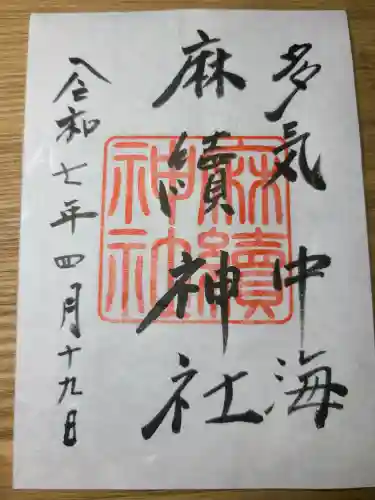 多気 中海
麻續神社
令和七年四月十九日
麻續
神社